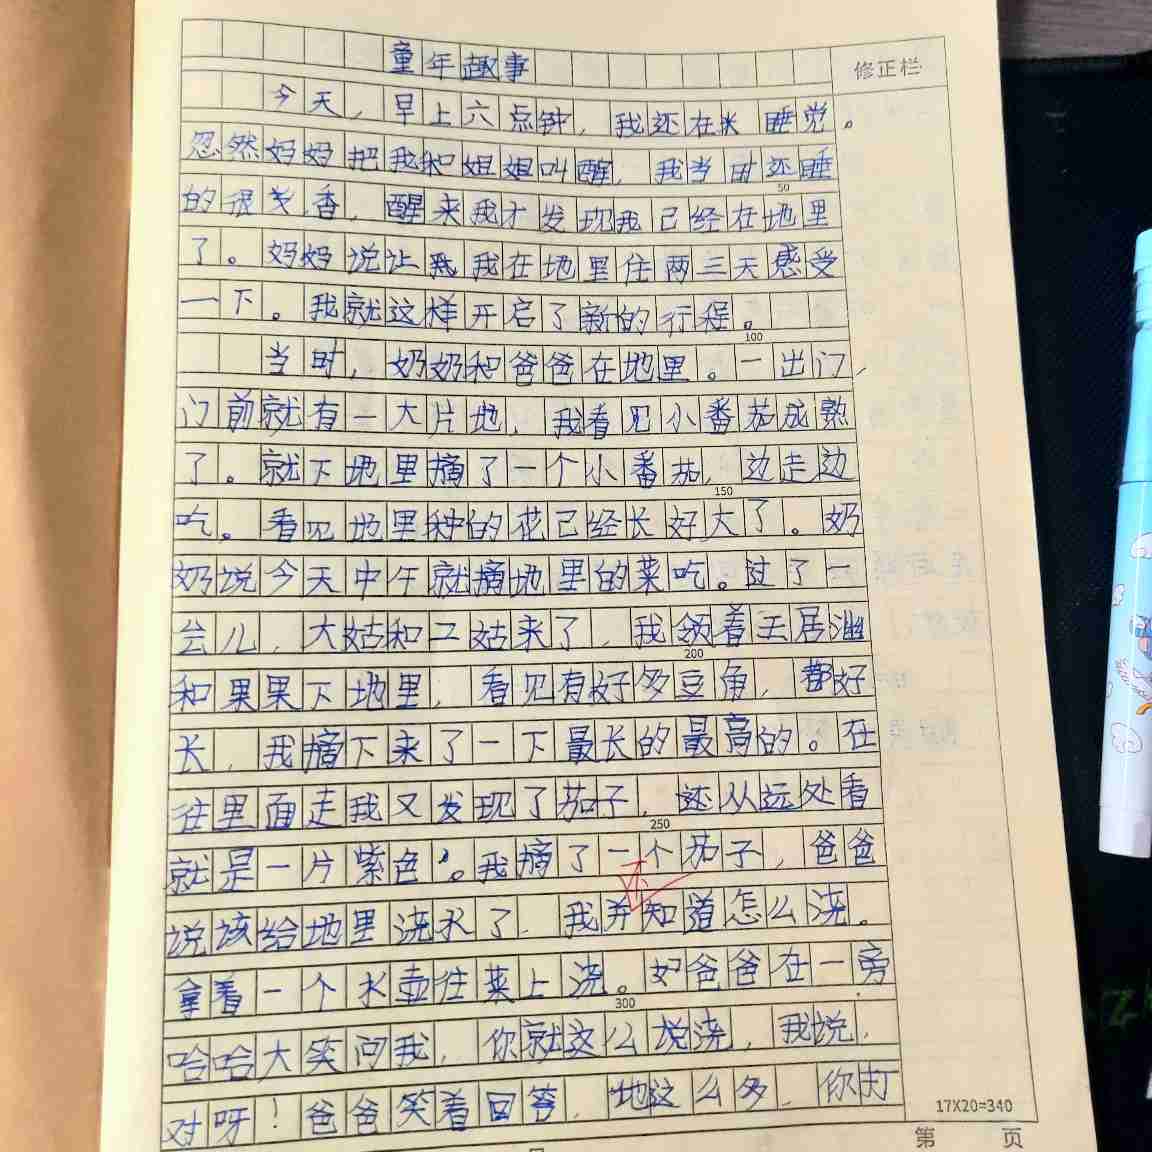 童年趣事
修正栏
今天,早上六点钟,我还在睡觉。
忽然妈妈把我和姐姐叫醒,我当时还睡
50
的很香,醒来我才发现我已经在地里
了。妈妈说让我在地里住两三天感受
一下。我就这样开启了新的行程。
100
当时,奶奶和爸爸在地里。一出门,
门前就有一大片地,我看见小番茄成熟
了。就下地里摘了一个小番茄,边走边
150
吃。看见地里种的花已经长好大了。奶
奶说今天中午就摘地里的菜吃。过了一
会儿,大姑和二姑来了,我领着王居
200
和果果下地里,看见有好多豆角,都好
长,我摘下来了一下最长的最高的。在
往里面走我又发现了茄子,还从远处看
250
就是一片紫色。我摘了一个茄子,爸爸
说该给地里浇水了,我并不知道怎么浇。
拿着一个水壶往菜上浇。爸爸在一旁
300
哈哈大笑问我,你就这么说浇,我说,
对呀!爸爸笑着回答,地这么多,你打
17X20=340
第 页